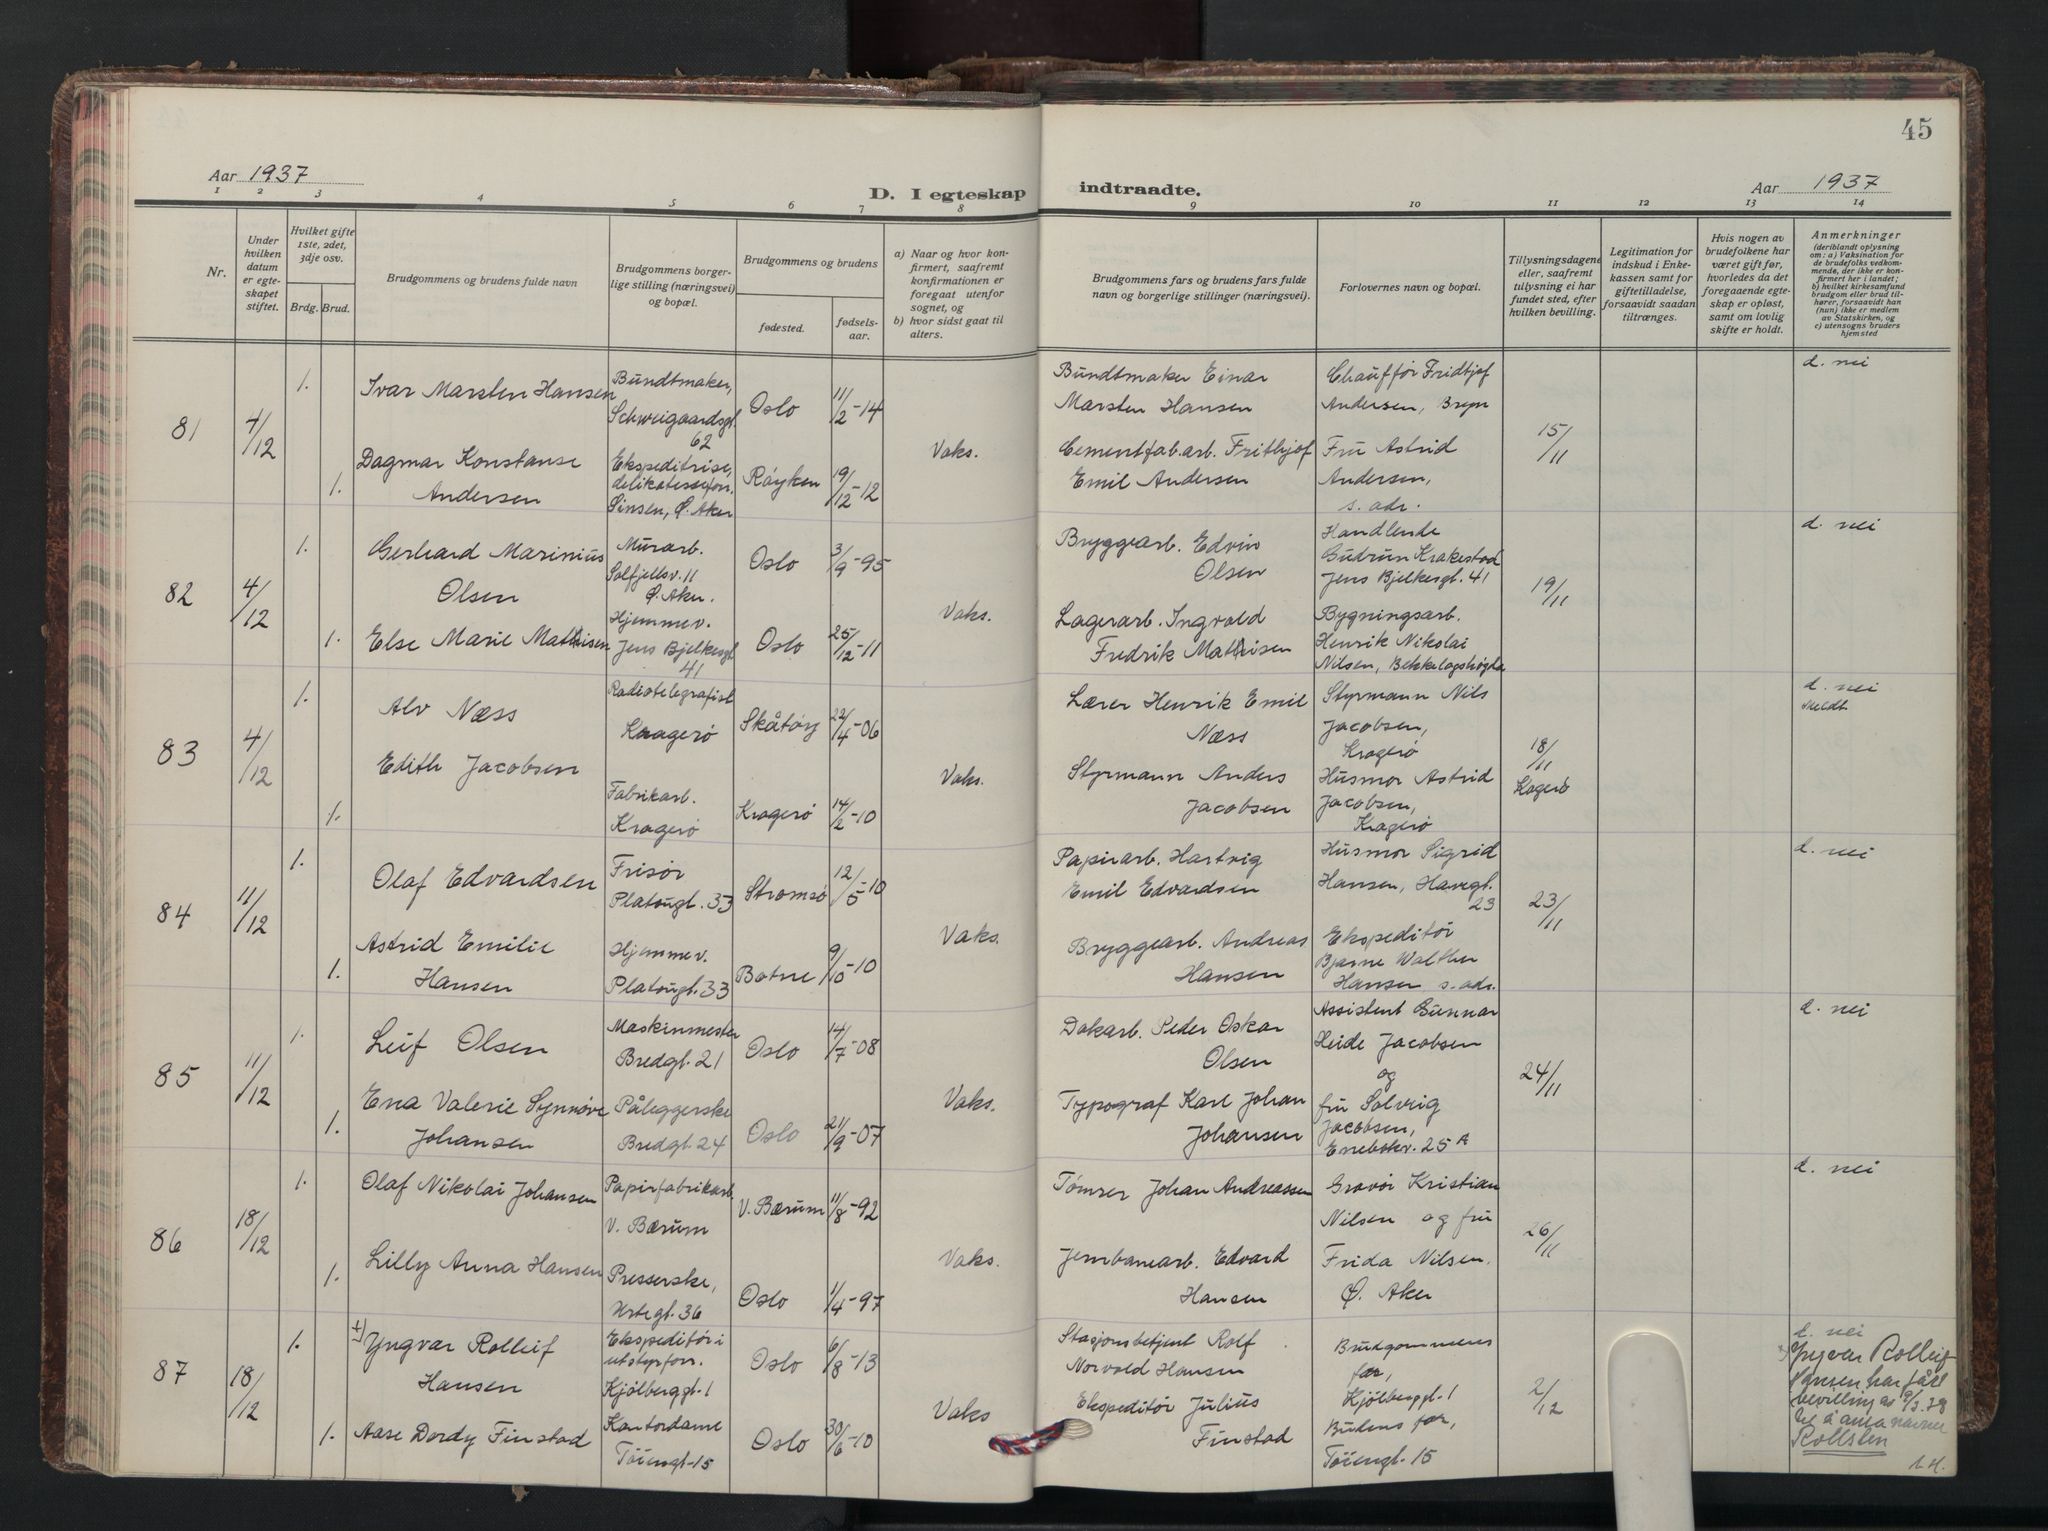 45
Aar 1937
D. I egteskap
indtraadte.
Aar 1937
1 2 3 4 5 6 7 8 9 10 11 12 13 14
Nr.
Under hvilken datum er egteskapet stiftet.
Hvilket gifte 1ste, 2det, 3dje osv.
Brdg. Brud.
Brudgommens og brudens fulde navn
Brudgommens borgerlige stilling (næringsvei) og bopæl.
Brudgommens og brudens
fødested.
fødselsaar.
a) Naar og hvor konfirmert, saafremt konfirmationen er foregaat utenfor sognet, og
b) hvor sidst gaat til alters.
Brudgommens fars og brudens fars fulde navn og borgerlige stillinger (næringsvei).
Forlovernes navn og bopæl.
Tillysningsdagene eller, saafremt tillysning ei har fundet sted, efter hvilken bevilling.
Legitimation for indskud i Enkekassen samt for giftetilladelse, forsaavidt saadan tiltrænges.
Hvis nogen av brudefolkene har været gift før, hvorledes da det foregaaende egteskap er opløst, samt om lovlig skifte er holdt.
Anmerkninger
(deriblandt oplysning om: a) Vaksination for de brudefolks vedkommende, der ikke er konfirmert her i landet;
b) hvilket kirkesamfund brudgom eller brud tilhører, forsaavidt han (hun) ikke er medlem av Statskirken, og
c) utensogns bruders hjemsted
81
4/12
1.
Ivar Marsten Hansen
Bundtmaker,
Schweigaardsgt.
62
Oslo
11/2-14
1.
Dagmar Konstanse
Andersen
Ekspeditrise,
delikatessefor.
Sinsen, Ø. Aker
Røyken
19/12-12
Vaks.
Bundtmaker Einar
Marsten Hansen
Cementfab.arb. Frithjof
Emil Andersen
Chauffør Fridtjof
Andersen, Bryn
Fru Astrid
Andersen,
s. adr.
15/11
d. nei
82
4/12
1.
Gerhard Marinius
Olsen
Murarb.
Solfjellsv. 11
Ø. Aker.
Oslo
3/9-95
1.
Else Marie Mathisen
Hjemmev.
Jens Bjelkesgt.
41
Oslo
25/12-11
Vaks.
Bryggearb. Edvin
Olsen
Lagerarb. Ingvald
Fredrik Mathisen
Handlende
Gudrun Krakestad
Jens Bjelkesgt. 41
Bygningsarb.
Henrik Nikolai
Nilsen, Bekkelagshøgda
19/11
d. nei
83
4/12
1.
Alv Næss
Radiotelegrafist
Kragerø
Skåtøy
22/4-06
1.
Edith Jacobsen
Fabrikarb.
Kragerø
Kragerø
14/2-10
Vaks.
Lærer Henrik Emil
Næss
Styrmann Anders
Jacobsen
Styrmann Nils
Jacobsen,
Kragerø
Husmor Astrid
Jacobsen,
Kragerø
18/11
Kagerø
d. nei
meldt.
84
11/12
1.
Olaf Edvardsen
Frisør
Platougt. 33
Strømsø
12/5-10
1.
Astrid Emilie
Hansen
Hjemmev.
Platougt. 33
Botne
9/10-10
Vaks.
Papirarb. Hartvig
Emil Edvardsen
Bryggearb. Andreas
Hansen
Husmor Sigrid
Hansen, Havegt.
23
Ekspeditør
Bjarne Walther
Hansen s. adr.
23/11
d. nei
85
11/12
1.
Leif Olsen
Maskinmester
Bredgt. 21
Oslo
14/7-08
1.
Ena Valerie Synnøve
Johansen
Påleggerske
Bredgt. 24
Oslo
21/9-07
Vaks.
Dokarb. Peder Oskar
Olsen
Typograf Karl Johan
Johansen
Assistent Gunnar
Heide Jacobsen
og
fru Solveig
Jacobsen,
Enebakv. 25 A
24/11
d. nei
86
18/12
1.
Olaf Nikolai Johansen
Papirfabrikarb.
V. Bærum
V. Bærum
11/8-92
1.
Lilly Anna Hansen
Presserske,
Urtegt. 36
Oslo
1/4-97
Vaks.
Tømrer Johan Andreassen
Jernbanearb. Edvard
Hansen
Gravør Kristian
Nilsen og fru
Frida Nilsen,
Ø. Aker
26/11
d. nei
87
18/12
1.
+) Yngvar Rolleif
Hansen
Ekspeditør i
utstyrfor.
Kjølberggt. 1
Oslo
6/8-13
1.
Aase Dordy Finstad
Kontordame
Tøiengt. 15
Oslo
30/6-10
Vaks
Stasjonsbetjent Rolf
Norvald Hansen
Ekspeditør Julius
Finstad
Brudgommens
far,
Kjølberggt. 1
Brudens far,
Tøiengt. 15
2/12
d. nei
+) Yngvar Rolleif
Hansen har fått
bevilling av 9/3.38
til å anta navnet
Rollsten